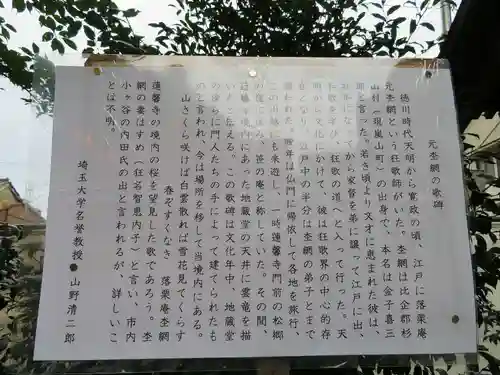 元杢網の歌碑
徳川時代天明から寛政の頃、江戸に落栗庵
元杢網という狂歌師がいた。杢網は比企郡杉
山村（現嵐山町）の出身で、本名は金子喜三
郎と言った。若き頃より文才に恵まれた彼は、
になってから家督を弟に譲って江戸に出、
和歌を学び、狂歌の道へと入って行った。天
明から文化にかけて、彼は狂歌界の中心的存
在となり、江戸中の半分は杢網の弟子とまで
謳われた。晩年は仏門に帰依して各地を旅行、
この川越にも来遊し、一時蓮馨寺門前の松郷
の庵に住み、笹の庵と称していた。その間、
蓮馨寺境内にあった地蔵堂の天井に雲竜を描
いたと伝える。この歌碑は文化年中、地蔵堂
の傍らに門人たちの手によって建てられたも
のと言われ、今は場所を移して当境内にある。
山さくら咲けば白雲散れば雪花見てくらす
春ぞすくなき　落栗庵杢網
蓮馨寺の境内の桜を望見した歌であろう。杢
網の妻はすめ（狂名智恵内子）と言い、市内
小ヶ谷の内田氏の出と言われるが、詳しいこ
とは不明。
埼玉大学名誉教授●山野清二郎